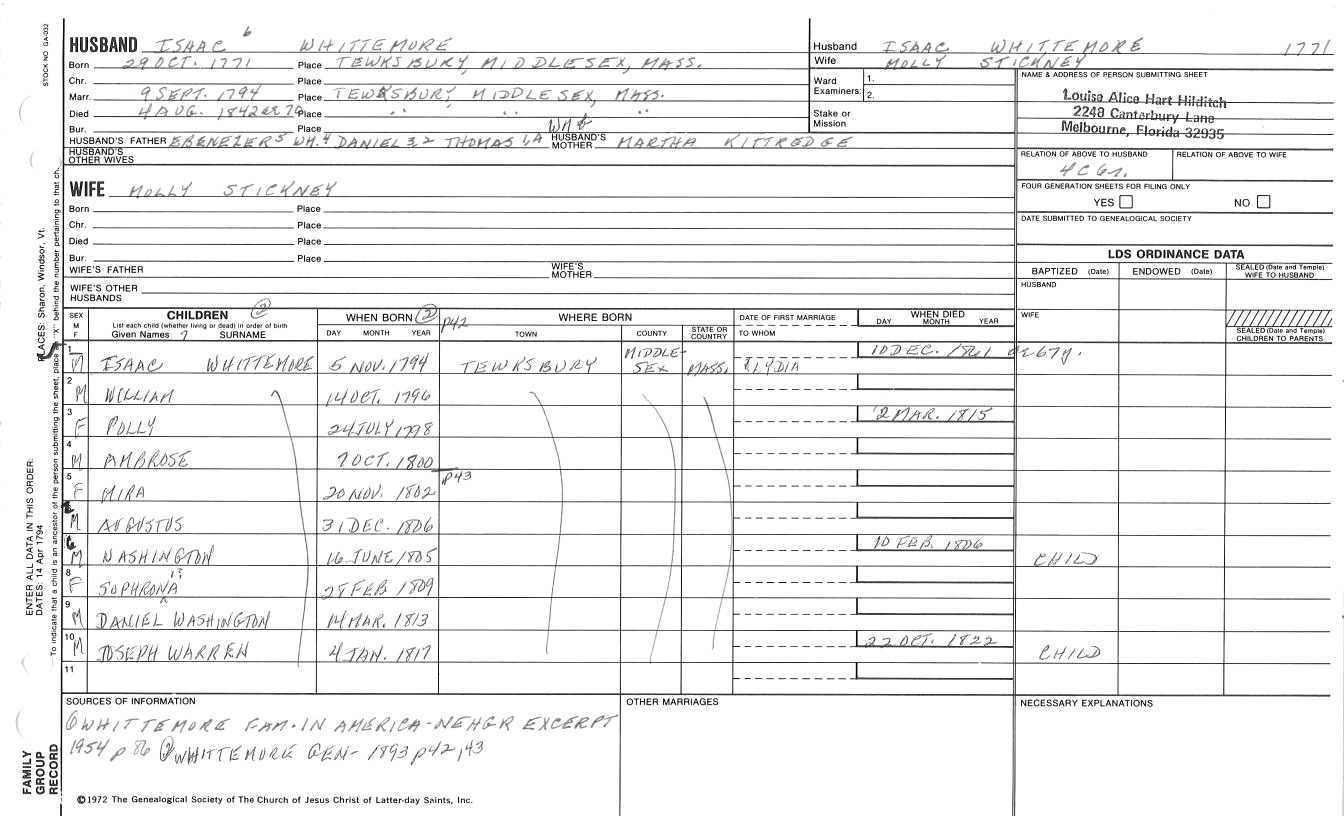 STOCK NO GA-032
HUSBAND ISAAC 6 WHITTEMORE
Born 29 OCT. 1771 Place TEWKSBURY, MIDDLESEX, MASS.
Chr. Place
Marr. 9 SEPT. 1794 Place TEWKSBURY, MIDDLESEX, MASS.
Died 4 AUG. 1842 ae 70 Place " " "
Bur. Place
HUSBAND'S FATHER EBENEZER 5 WM. 4 DANIEL 3, 2 THOMAS 1, A HUSBAND'S MOTHER MARTHA KITTREDGE
HUSBAND'S OTHER WIVES
WIFE MOLLY STICKNEY
Born Place
Chr. Place
Died Place
Bur. Place
WIFE'S FATHER WIFE'S MOTHER
WIFE'S OTHER HUSBANDS
Husband ISAAC WHITTEMORE 1771
Wife MOLLY STICKNEY
Ward Examiners: 1. 2.
Stake or Mission
NAME & ADDRESS OF PERSON SUBMITTING SHEET
Louise Alice Hart Hilditch
2248 Canterbury Lane
Melbourne, Florida 32935
RELATION OF ABOVE TO HUSBAND RELATION OF ABOVE TO WIFE
FOUR GENERATION SHEETS FOR FILING ONLY
YES NO
DATE SUBMITTED TO GENEALOGICAL SOCIETY
LDS ORDINANCE DATA
BAPTIZED (Date) ENDOWED (Date) SEALED (Date and Temple) WIFE TO HUSBAND
HUSBAND
WIFE
SEALED (Date and Temple) CHILDREN TO PARENTS
SEX M F CHILDREN 2 WHEN BORN 2 p42 WHERE BORN DATE OF FIRST MARRIAGE WHEN DIED
List each child (whether living or dead) in order of birth
Given Names SURNAME DAY MONTH YEAR TOWN COUNTY STATE OR COUNTRY TO WHOM DAY MONTH YEAR
1 M ISAAC WHITTEMORE 5 NOV. 1794 TEWKSBURY MIDDLE-SEX MASS. LYDIA 10 DEC. 1861 ae 67y.
2 M WILLIAM 14 OCT. 1796
3 F POLLY 24 JULY 1798 2 MAR. 1815
4 M AMBROSE 7 OCT. 1800
5 F MIRA 20 NOV. 1802 p43
M AUGUSTUS 31 DEC. 1806
6 M WASHINGTON 16 JUNE 1805 10 FEB. 1806 CHILD
8 F SOPHRONA i? 28 FEB 1809
9 M DANIEL WASHINGTON 14 MAR. 1813
10 M JOSEPH WARREN 4 JAN. 1817 22 OCT. 1822 CHILD
11
SOURCES OF INFORMATION
WHITTEMORE FAM. IN AMERICA - NEHGR EXCERPT
1954 p 86 2 WHITTEMORE GEN- 1893 p42, 43
OTHER MARRIAGES
NECESSARY EXPLANATIONS
©1972 The Genealogical Society of The Church of Jesus Christ of Latter-day Saints, Inc.
FAMILY GROUP RECORD
ENTER ALL DATA IN THIS ORDER:
DATES: 14 Apr 1794
PLACES: Sharon, Windsor, Vt.
To indicate that a child is an ancestor of the person submitting the sheet, place an "X" behind the number pertaining to that ch.